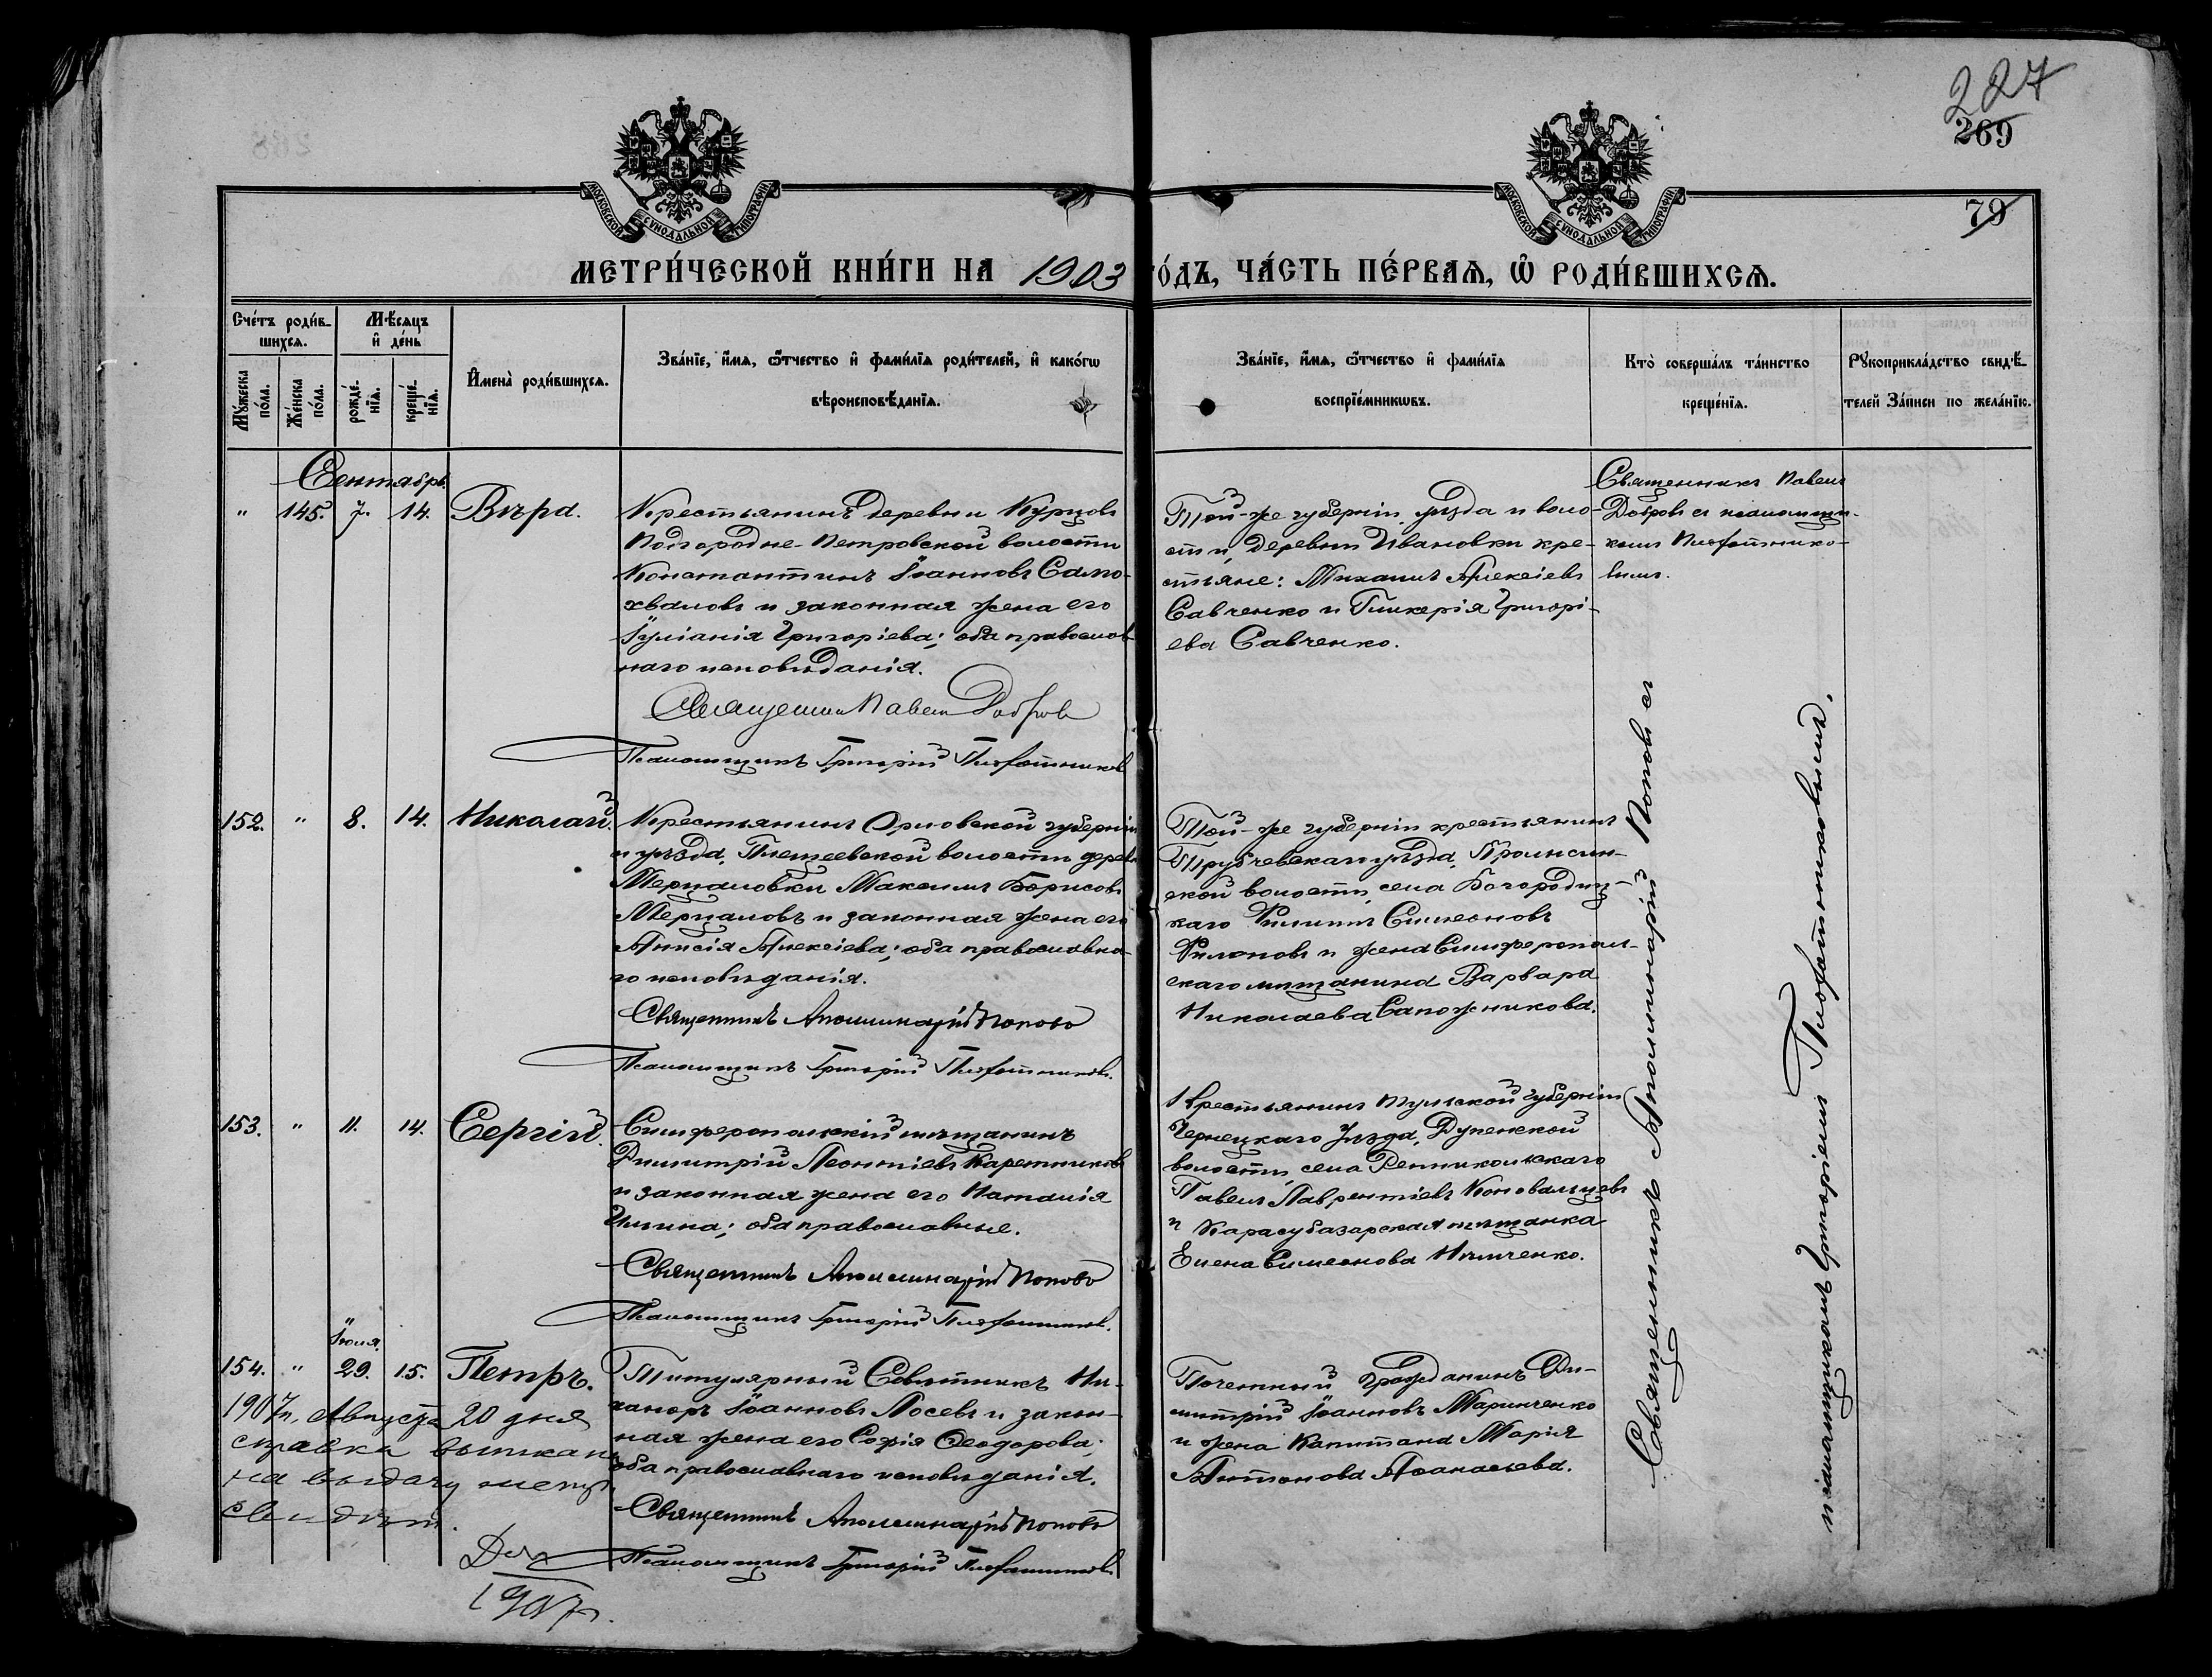 227
269
79
МОСКОВСКОЙ СѴНОДАЛЬНОЙ ТИПОГРАФІИ
МОСКОВСКОЙ СѴНОДАЛЬНОЙ ТИПОГРАФІИ
МЕТРИ́ЧЕСКОЙ КНИ́ГИ НА 1903 ГО́ДЪ, ЧА́СТЬ ПЕ́РВАѦ, Ѿ РОДИ́ВШИХСѦ.
Сче́тъ роди́в-
шихсѧ.
Мѣ́сѧцъ
и҆ де́нь
Мꙋ́жеска по́ла.
Же́нска по́ла.
рожде́-
нїѧ.
креще́-
нїѧ.
И҆мена̀ роди́вшихсѧ.
Зва́нїе, и҆́мѧ, ѻ҆́тчество и҆ фами́лїѧ роди́телей, и҆ како́гѡ
вѣроисповѣ́данїѧ.
Зва́нїе, и҆́мѧ, ѻ҆́тчество и҆ фами́лїѧ
воспрїе́мникѡвъ.
Кто̀ соверша́лъ та́инство
креще́нїѧ.
Рꙋкоприкла́дство свидѣ́-
телей За́писи по жела́нїю.
Сентябрь.
" 145. 7. 14. Вѣра.
Крестьянинъ деревни Курцовъ
Подгородне-Петровской волости
Константинъ Іоанновъ Само-
хваловъ и законная жена его
Іуліанія Григоріева; оба православ-
наго исповѣданія.
Священникъ Павелъ Добровъ
Псаломщикъ Григорій Плохотниковъ
Той-же губерніи, уѣзда и воло-
сти, деревни Ивановки кре-
стьяне: Михаилъ Алексіевъ
Савченко и Гликерія Григорі-
ева Савченко.
Священникъ Павелъ
Добровъ съ псаломщи-
комъ Плохотнико-
вымъ.
152. " 8. 14. Николай.
Крестьянинъ Орловской губерніи
и уѣзда, Плещеевской волости дерев.
Мерцаловки Максимъ Борисовъ
Мерцаловъ и законная жена его
Анисія Алексіева; оба православна-
го исповѣданія.
Священникъ Аполлинарій Поповъ
Псаломщикъ Григорій Плохотниковъ.
Той-же губерніи крестьянинъ
Трубчевскаго уѣзда,
ской волости, села Богородиц-
каго Филиппъ Симеоновъ
Филоновъ и жена Симферополь-
скаго мѣщанина Варвара
Николаева Сапожникова.
153. " 11. 14. Сергій.
Симферопольскій мѣщанинъ
Димитрій Леонтіевъ Каретниковъ
и законная жена его Наталія
Ильина; оба православные.
Священникъ Аполлинарій Поповъ
Псаломщикъ Григорій Плохотниковъ.
Крестьянинъ Тульской губерніи
уѣзда,
волости, села
Павелъ Лаврентіевъ Коновальцевъ
и Карасубазарская мѣщанка
Елена Симеонова
Іюля.
154. " 29. 15. Петръ.
Титулярный Совѣтникъ Ни-
каноръ Іоанновъ Лосевъ и закон-
ная жена его Софія Ѳеодорова;
оба православнаго исповѣданія.
Священникъ Аполлинарій Поповъ
Псаломщикъ Григорій Плохотниковъ.
Почетный Гражданинъ Ди-
митрій Іоанновъ Маринченко
и жена Капитана Марія
Антонова Аѳанасьева.
1907 г. Августа 20 дня
справка выписана
на выдачу метр.
свидѣт.
1907 г.
Священникъ Аполлинарій Поповъ съ
псаломщикомъ Григоріемъ Плохотниковымъ.